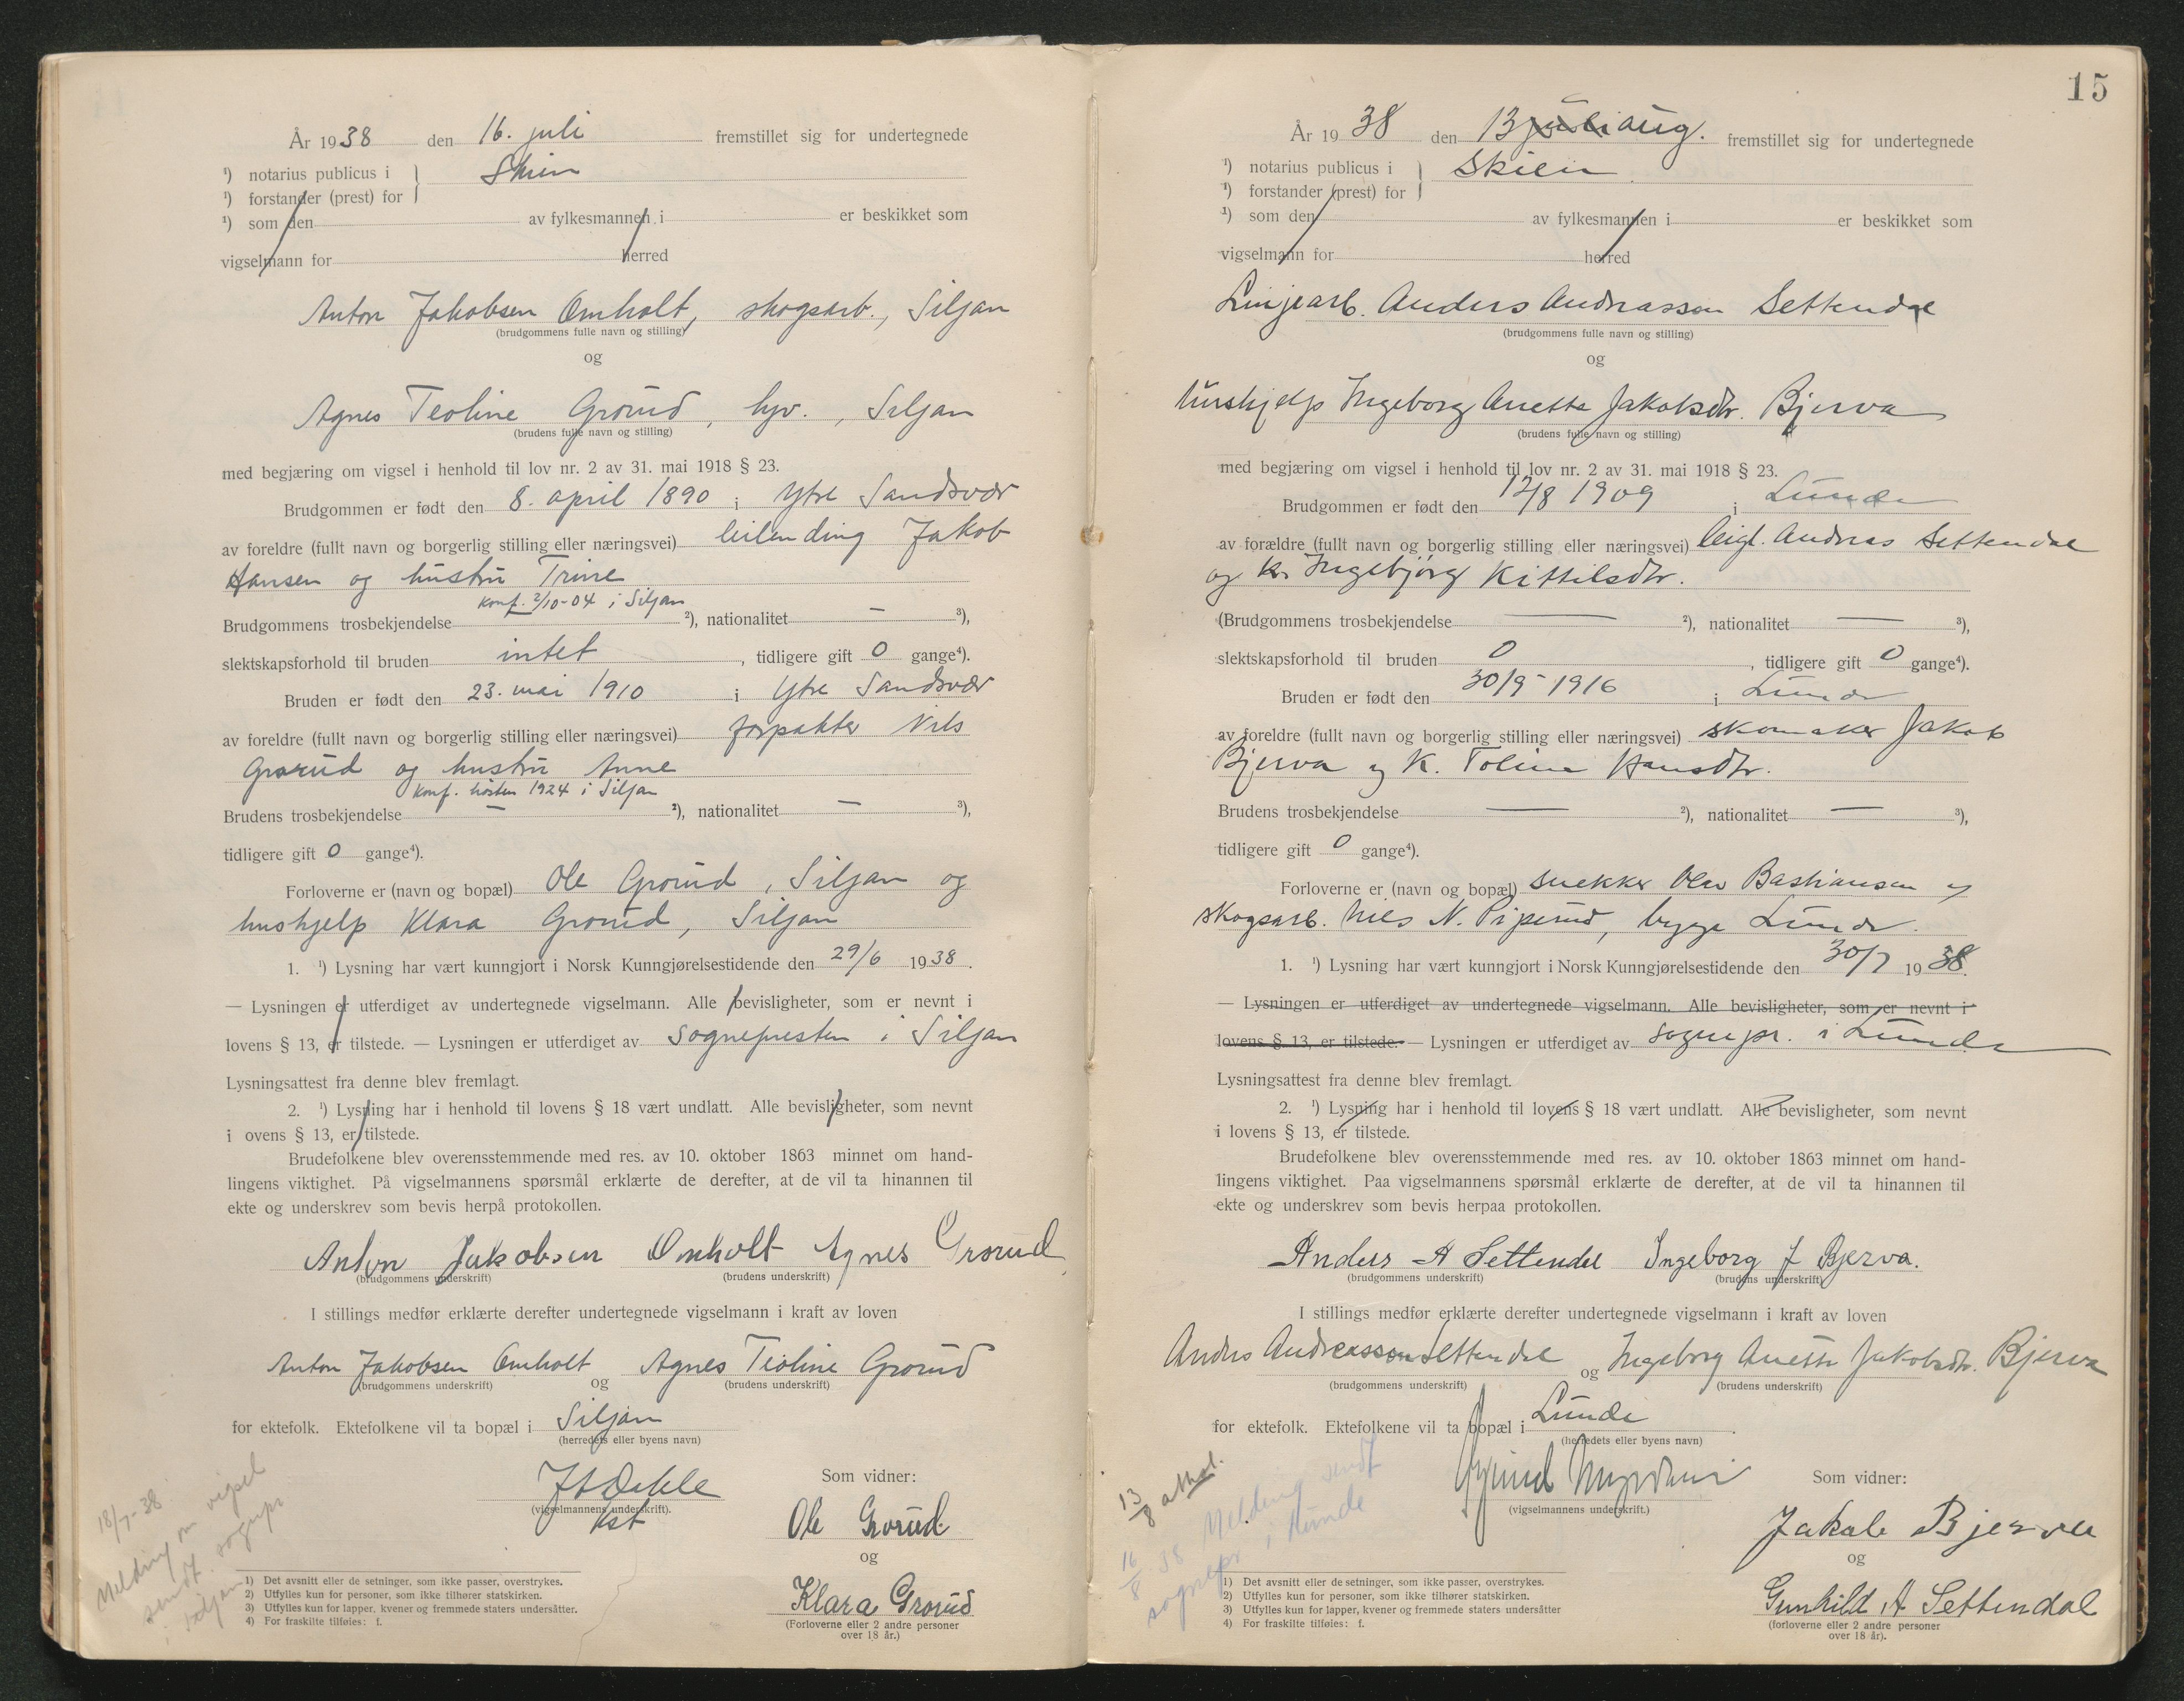 År 1938 den 16. juli fremstillet sig for undertegnede
¹) notarius publicus i } Skien
¹) forstander (prest) for
¹) som den av fylkesmannen i er beskikket som
vigselmann for herred
Anton Jakobsen Omholt, skogsarb., Siljan
(brudgommens fulle navn og stilling)
og
Agnes Teoline Grorud, hv., Siljan
(brudens fulle navn og stilling)
med begjæring om vigsel i henhold til lov nr. 2 av 31. mai 1918 § 23.
Brudgommen er født den 8. april 1890 i Ytre Sandsvær
av foreldre (fullt navn og borgerlig stilling eller næringsvei) leilending Jakob
Hansen og hustru Trine
konf. 2/10-04 i Siljan
Brudgommens trosbekjendelse ²), nationalitet — ³),
slektskapsforhold til bruden intet, tidligere gift 0 gange⁴).
Bruden er født den 23. mai 1910 i Ytre Sandsvær
av foreldre (fullt navn og borgerlig stilling eller næringsvei) forpakter Nils
Grorud og hustru Anne
konf. høsten 1924 i Siljan
Brudens trosbekjendelse — ²), nationalitet — ³),
tidligere gift 0 gange⁴).
Forloverne er (navn og bopæl) Ole Grorud, Siljan og
hushjelp Klara Grorud, Siljan
1. ¹) Lysning har vært kunngjort i Norsk Kunngjørelsestidende den 29/6 1938.
— Lysningen er utferdiget av undertegnede vigselmann. Alle bevisligheter, som er nevnt i
lovens § 13, er tilstede. — Lysningen er utferdiget av sognepresten i Siljan
Lysningsattest fra denne blev fremlagt.
2. ¹) Lysning har i henhold til lovens § 18 vært undlatt. Alle bevisligheter, som nevnt
i ovens § 13, er tilstede.
Brudefolkene blev overensstemmende med res. av 10. oktober 1863 minnet om hand-
lingens viktighet. På vigselmannens spørsmål erklærte de derefter, at de vil ta hinannen til
ekte og underskrev som bevis herpå protokollen.
Anton Jakobsen Omholt Agnes Grorud
(brudgommens underskrift) (brudens underskrift)
I stillings medfør erklærte derefter undertegnede vigselmann i kraft av loven
Anton Jakobsen Omholt og Agnes Teoline Grorud
(brudgommens underskrift) (brudens underskrift)
for ektefolk. Ektefolkene vil ta bopæl i Siljan
(herredets eller byens navn)
Som vidner:
(vigselmannens underskrift).
Kst
Ole Grorud
og
Klara Grorud
(Forloverne eller 2 andre personer
over 18 år.)
18/7-38
Melding om vigsel
sendt sognepr.
i Siljan
1) Det avsnitt eller de setninger, som ikke passer, overstrykes.
2) Utfylles kun for personer, som ikke tilhører statskirken.
3) Utfylles kun for lapper, kvener og fremmede staters undersåtter.
4) For fraskilte tilføies: f.
15
År 1938 den 13 juli aug. fremstillet sig for undertegnede
¹) notarius publicus i } Skien
¹) forstander (prest) for
¹) som den av fylkesmannen i er beskikket som
vigselmann for herred
Linjearb. Anders Andreassen Settendal
(brudgommens fulle navn og stilling)
og
Hushjelp Ingeborg Anette Jakobsdtr. Bjerva
(brudens fulle navn og stilling)
med begjæring om vigsel i henhold til lov nr. 2 av 31. mai 1918 § 23.
Brudgommen er født den 12/8 1909 i Lunde
av forældre (fullt navn og borgerlig stilling eller næringsvei) leigl. Andreas Settendal
og k. Ingebjørg Kittilsdtr.
(Brudgommens trosbekjendelse — ²), nationalitet — ³),
slektskapsforhold til bruden 0, tidligere gift 0 gange⁴).
Bruden er født den 30/9-1916 i Lunde
av foreldre (fullt navn og borgerlig stilling eller næringsvei) skomaker Jakob
Bjerva og K. Toline Hansdtr.
Brudens trosbekjendelse — ²), nationalitet — ³),
tidligere gift 0 gange⁴).
Forloverne er (navn og bopæl) snekker Olav Bastiansen og
skogsarb. Nils N. Piperud, begge Lunde.
1. ¹) Lysning har vært kunngjort i Norsk Kunngjørelsestidende den 30/7 1938.
— Lysningen er utferdiget av undertegnede vigselmann. Alle bevisligheter, som er nevnt i
lovens § 13, er tilstede. — Lysningen er utferdiget av sognepr. i Lunde
Lysningsattest fra denne blev fremlagt.
2. ¹) Lysning har i henhold til lovens § 18 vært undlatt. Alle bevisligheter, som nevnt
i lovens § 13, er tilstede.
Brudefolkene blev overensstemmende med res. av 10. oktober 1863 minnet om hand-
lingens viktighet. Paa vigselmannens spørsmål erklærte de derefter, at de vil ta hinannen til
ekte og underskrev som bevis herpaa protokollen.
Anders A Settendal Ingeborg J Bjerva.
(brudgommens underskrift) (brudens underskrift)
I stillings medfør erklærte derefter undertegnede vigselmann i kraft av loven
Anders Andreassen Settendal og Ingeborg Anette Jakobsdtr. Bjerva
(brudgommens underskrift) (brudens underskrift)
for ektefolk. Ektefolkene vil ta bopæl i Lunde
(herredets eller byens navn)
Som vidner:
(vigselmannens underskrift.)
Jakob Bjerva
og
Gunhild A Settendal
(forloverne eller 2 andre personer
over 18 år).
13/8
16/8 38 Melding sendt
sognepr. i Lunde
1) Det avsnitt eller de setninger, som ikke passer, overstrykes.
2) Utfylles kun for personer, som ikke tilhører statskirken.
3) Utfylles kun for lapper, kvener og fremmede staters undersåtter
4) For fraskilte tilføies: f.